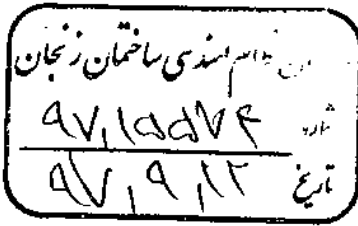 نظام مهندسی ساختمان زنجان
شماره ۹۷,۱۵۵۷۴
تاریخ ۹۷,۹,۱۲